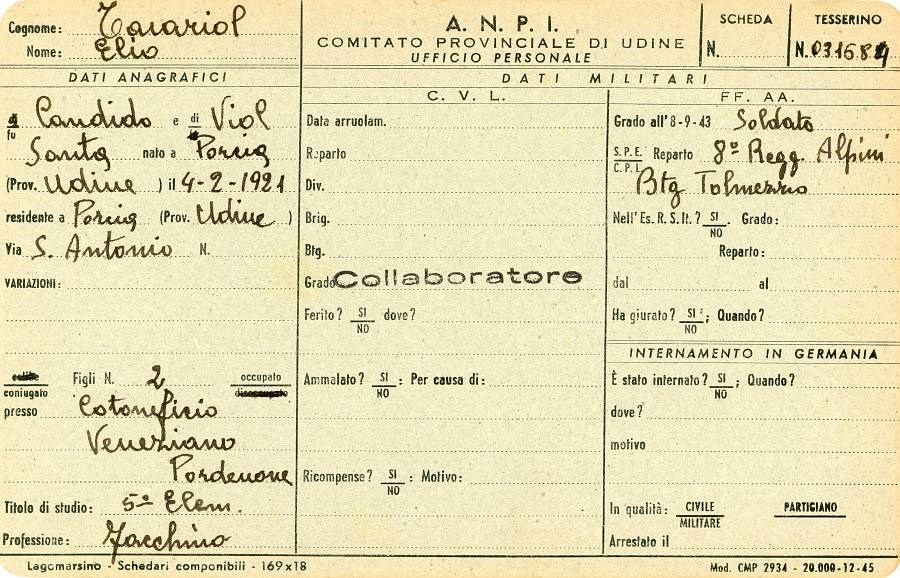 Cognome:
Nome: Elio
A. N. P. I.
COMITATO PROVINCIALE DI UDINE
UFFICIO PERSONALE
SCHEDA
N.
TESSERINO
N.
DATI ANAGRAFICI
DATI MILITARI
di
fu Candido e di Viol
Santa nato a Porcia
(Prov. Udine ) il 4-2-1921
residente a Porcia (Prov. Udine )
Via S. Antonio N.
VARIAZIONI:
celibe
coniugato
Figli N. 2
occupato
disoccupato
presso Cotonificio
Veneziano
Pordenone
Titolo di studio: 5ª Elem.
Professione: Facchino
C. V. L.
Data arruolam.
Reparto
Div.
Brig.
Btg.
Grado Collaboratore
Ferito? SI
NO dove?
Ammalato? SI
NO : Per causa di:
Ricompense? SI
NO : Motivo:
FF. AA.
Grado all'8-9-43 Soldato
S.P.E.
C.P.L. Reparto 8º Regg. Alpini
Btg Tolmezzo
Nell'Es. R. S. It.? SI
NO . Grado:
Reparto:
dal al
Ha giurato? SI
NO ; Quando?
INTERNAMENTO IN GERMANIA
È stato internato? SI
NO ; Quando?
dove?
motivo
In qualità: CIVILE
MILITARE
PARTIGIANO
Arrestato il
Lagomarsino - Schedari componibili - 169x18
Mod. CMP 2934 - 20.000-12-45